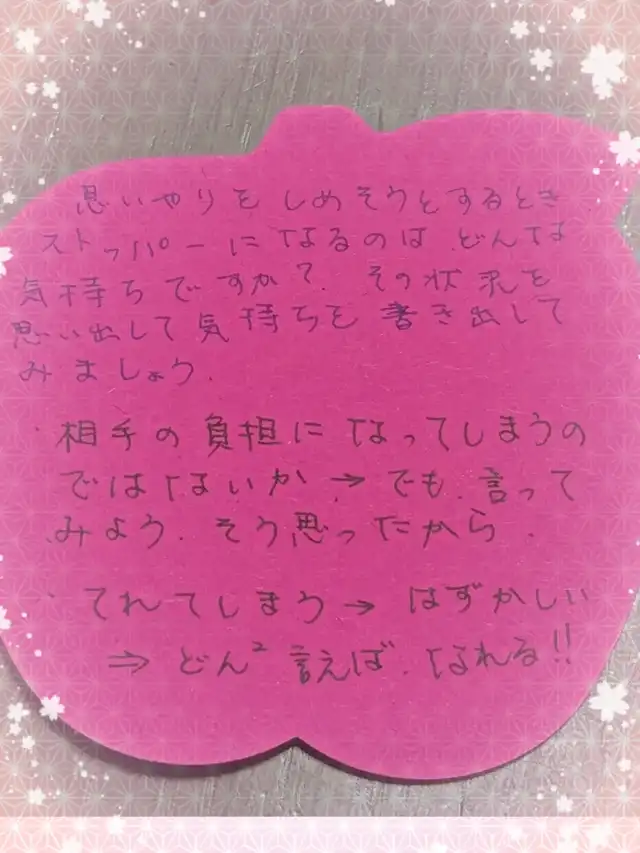 思いやりをしめそうとするとき
ストッパーになるのは、どんな
気持ちですか？その状況を
思い出して気持ちを書き出して
みましょう。
・相手の負担になってしまうの
ではないか→でも、言って
みよう。そう思ったから。
・てれてしまう→はずかしい
⇒どん²言えば、なれる!!